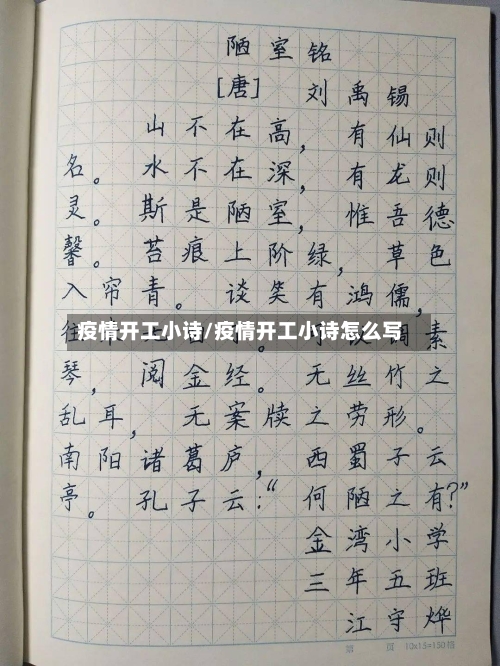 陋室铭
[唐] 刘禹锡
山不在高，有仙则
名。水不在深，有龙则
灵。斯是陋室，惟吾德
馨。苔痕上阶绿，草色
入帘青。谈笑有鸿儒，
疫情开工小诗/疫情开工小诗怎么写
素
琴，阅金经。无丝竹之
乱耳，无案牍之劳形。
南阳诸葛庐，西蜀子云
亭。孔子云：“何陋之有?”
金湾小学
三年五班
江守烨
10x15=150格